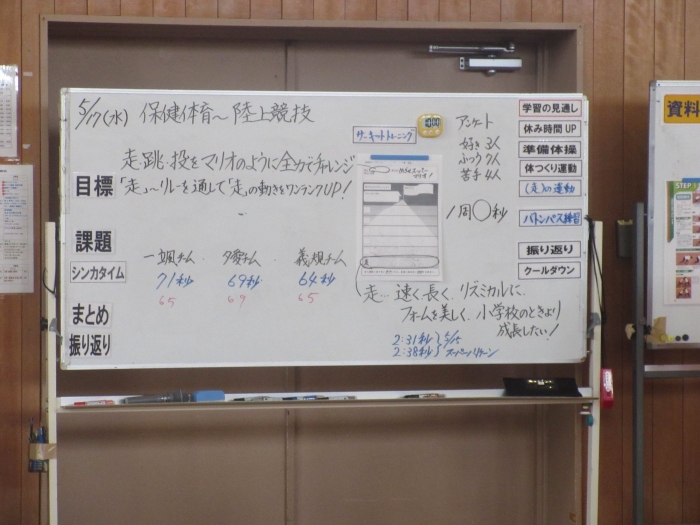 5/17(水) 保健体育〜陸上競技
走・跳・投をマリオのように全力でチャレンジ
目標
「走」〜リレーを通して「走」の動きをワンランクUP!
課題
シンカタイム
一颯チーム 夕愛チーム 義規チーム
71秒 69秒 64秒
65 69 65
まとめ
振り返り
サーキットトレーニング
アンケート
好き 3人
ふつう 7人
苦手 4人
1周〇秒
走… 速く、長く、リズミカルに、
フォームを美しく、小学校のときより
成長したい!
2:31秒
2:38秒
5/15
スーパーパターン
学習の見通し
休み時間 UP
準備体操
体つくり運動
(走)の運動
バトンパス練習
振り返り
クールダウン
資料
STEP 1